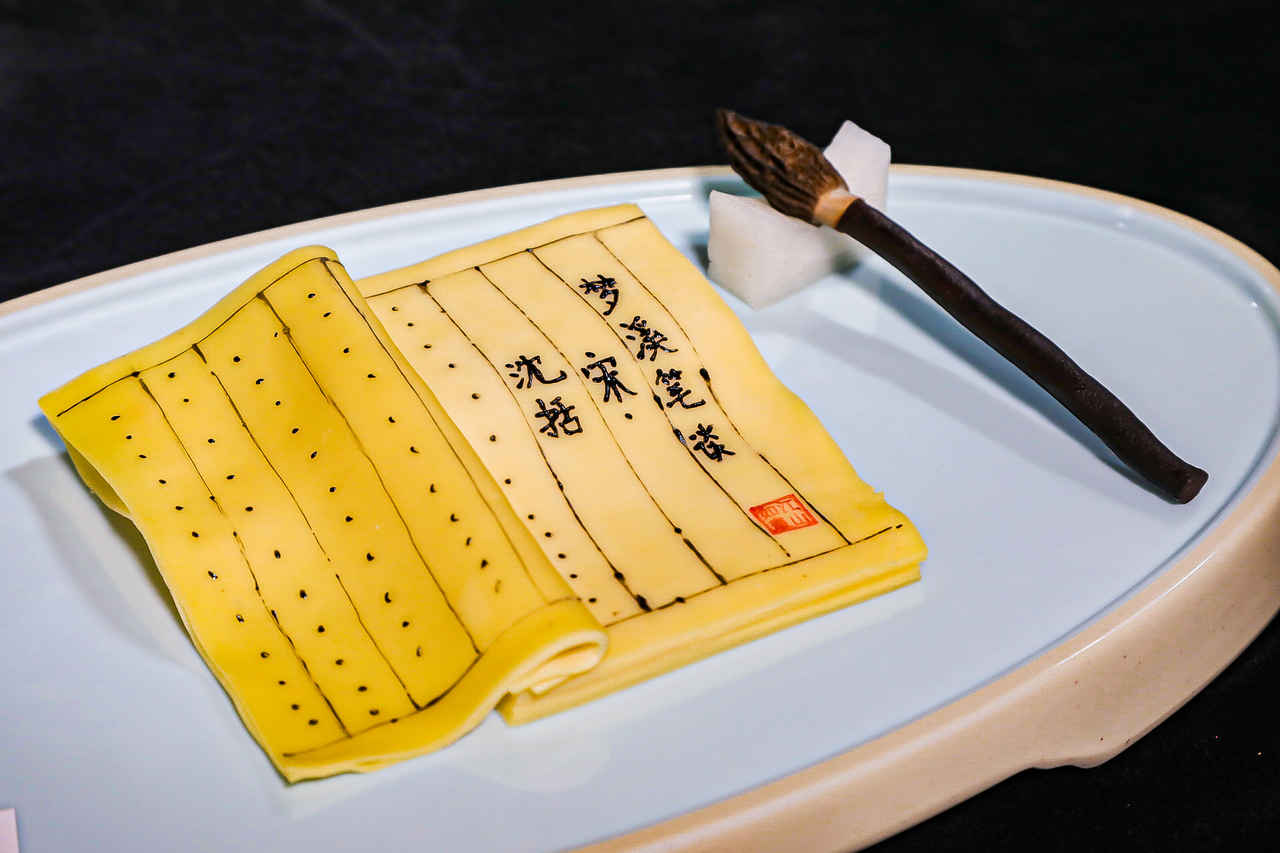 梦溪笔谈
宋·
沈括